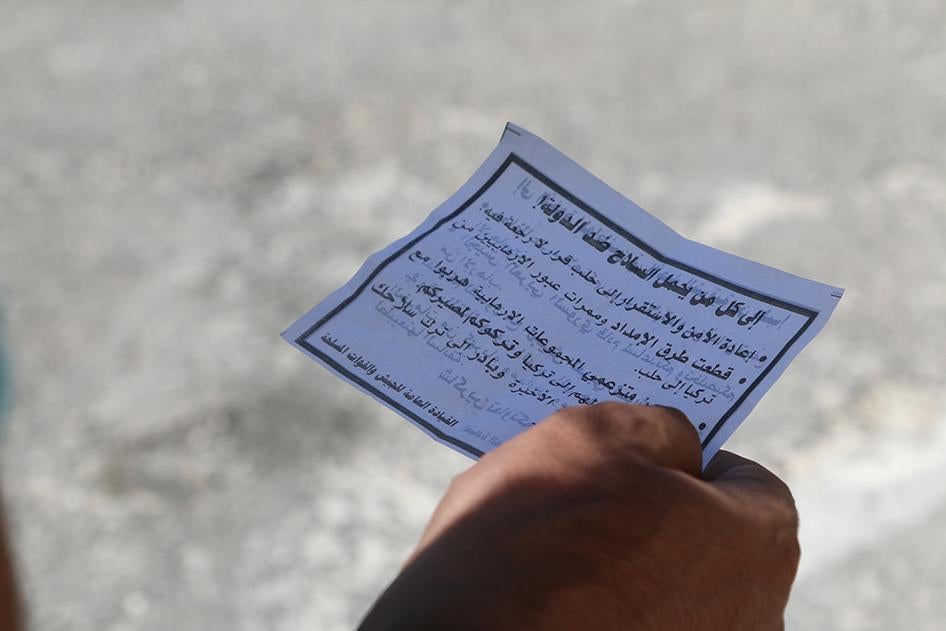 إلى كل من يحمل السلاح ضد الدولة!
• إعادة الأمن والاستقرار إلى حلب قرار لا رجعة فيه.
• قطعت طرق الإمداد وممرات عبور الإرهابيين من
تركيا إلى حلب.
• متزعمي المجموعات الإرهابية هربوا مع
إلى تركيا وتركوكم لمصيركم.
الأخيرة وبادر إلى ترك سلاحك
القيادة العامة للجيش والقوات المسلحة